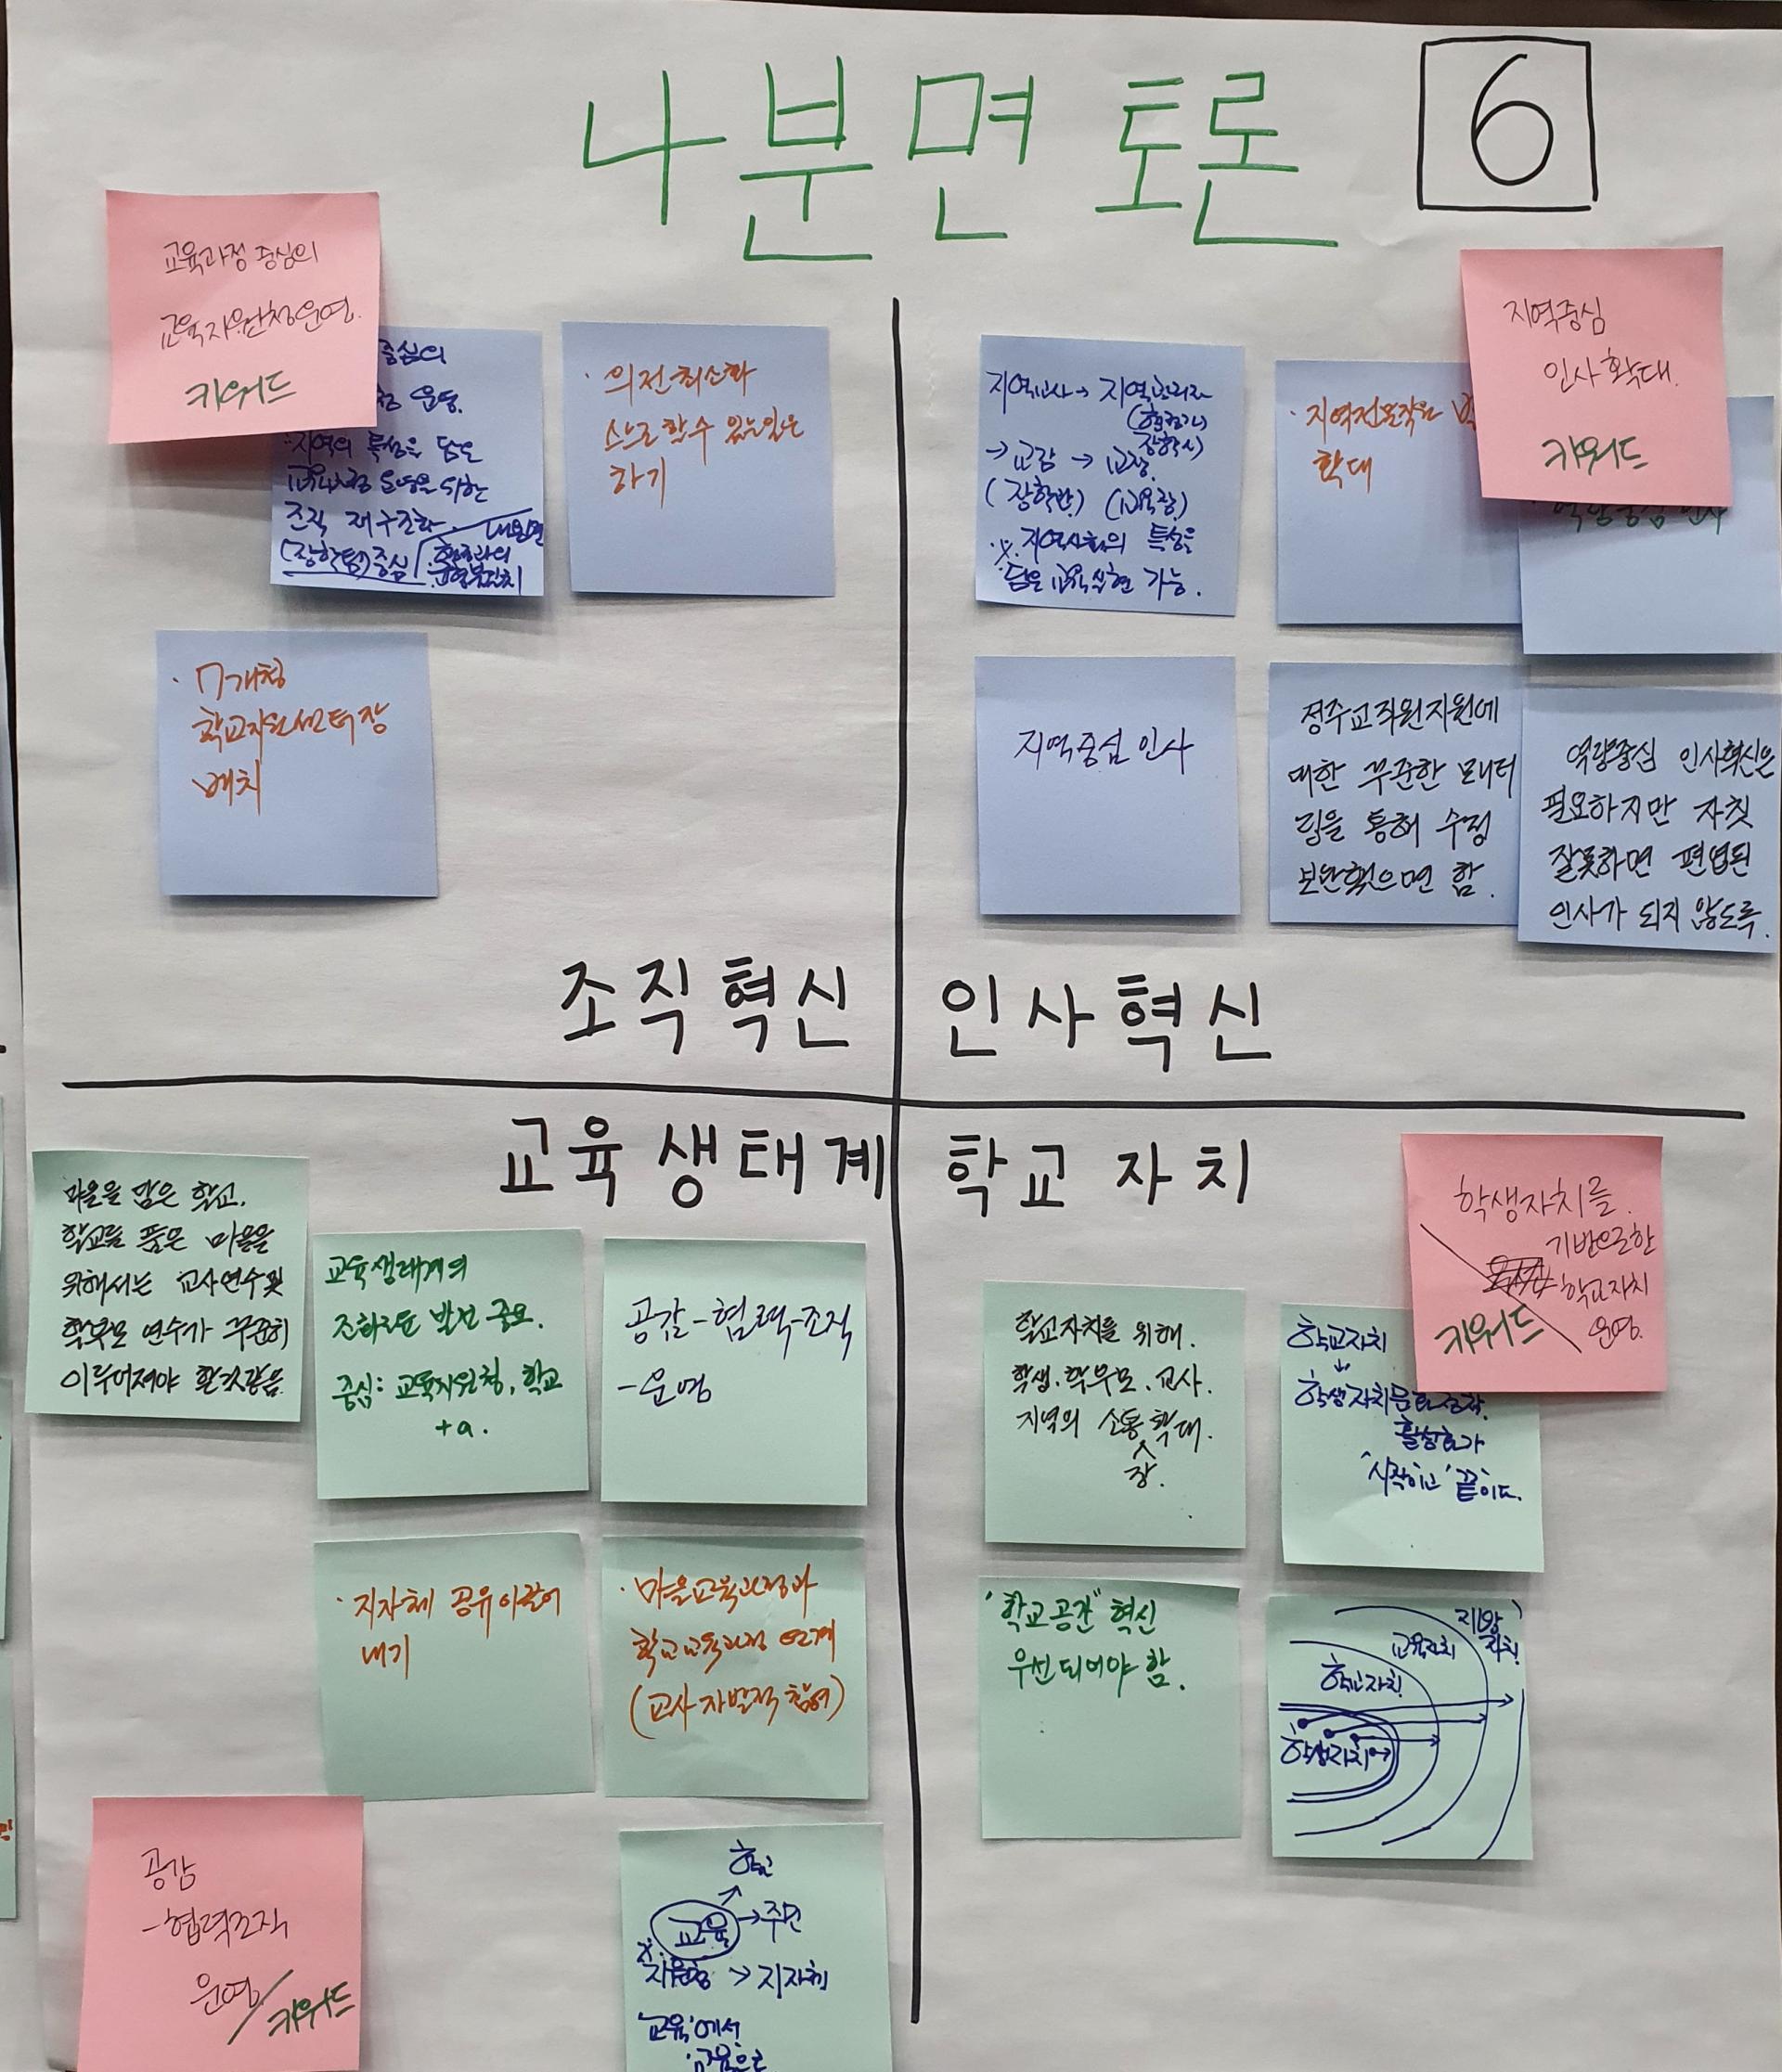 나분면 토론
6
교육과정 중심의
교육지원청 운영.
키워드
중심의
운영.
지역의 특성을 담은
교육과정 운영을 위한
조직 재구조화.
(장학팀) 중심
· 의전 최소화
스스로 할 수 있는 일은
하기
· 7개청
학교지원센터장
배치
조직혁신
지역중심
인사 확대.
키워드
지역교사 → 지역관리자
장학사)
→ 교감 → 교장
(장학관) (교육장)
※ 지역사회의 특성을
담은 교육실현 가능.
· 지역전문직원
확대
역량중심 인사
지역중심 인사
정주교직원지원에
대한 꾸준한 모니터
링을 통해 수정
보완했으면 함.
역량중심 인사혁신은
필요하지만 자칫
잘못하면 편협된
인사가 되지 않도록.
인사혁신
교육생태계
마을을 담은 학교.
학교를 품은 마을을
위해서는 교사연수 및
학부모 연수가 꾸준히
이루어져야 할것같음.
교육생태계의
조화로운 발전 중요.
중심: 교육지원청, 학교
+a.
공감-협력-조직
-운영
· 지자체 공유 이끌어
내기
· 마을교육과정과
학교교육과정 연계
(교사 자발적 참여)
공감
-협력조직
운영/
키워드
학교
교육 → 주민
지원청 → 지자체
'교육'에서
학교 자치
학생자치를
기반으로한
학교자치
운영.
키워드
학교자치를 위해.
학생. 학부모. 교사.
지역의 소통 확대.
장.
학교자치
↓
학생자치문화
활성화가
'시작이고' '끝'이다.
"학교공간" 혁신
우선 되어야 함.
지방
자치!
교육자치
학교자치!
학생자치